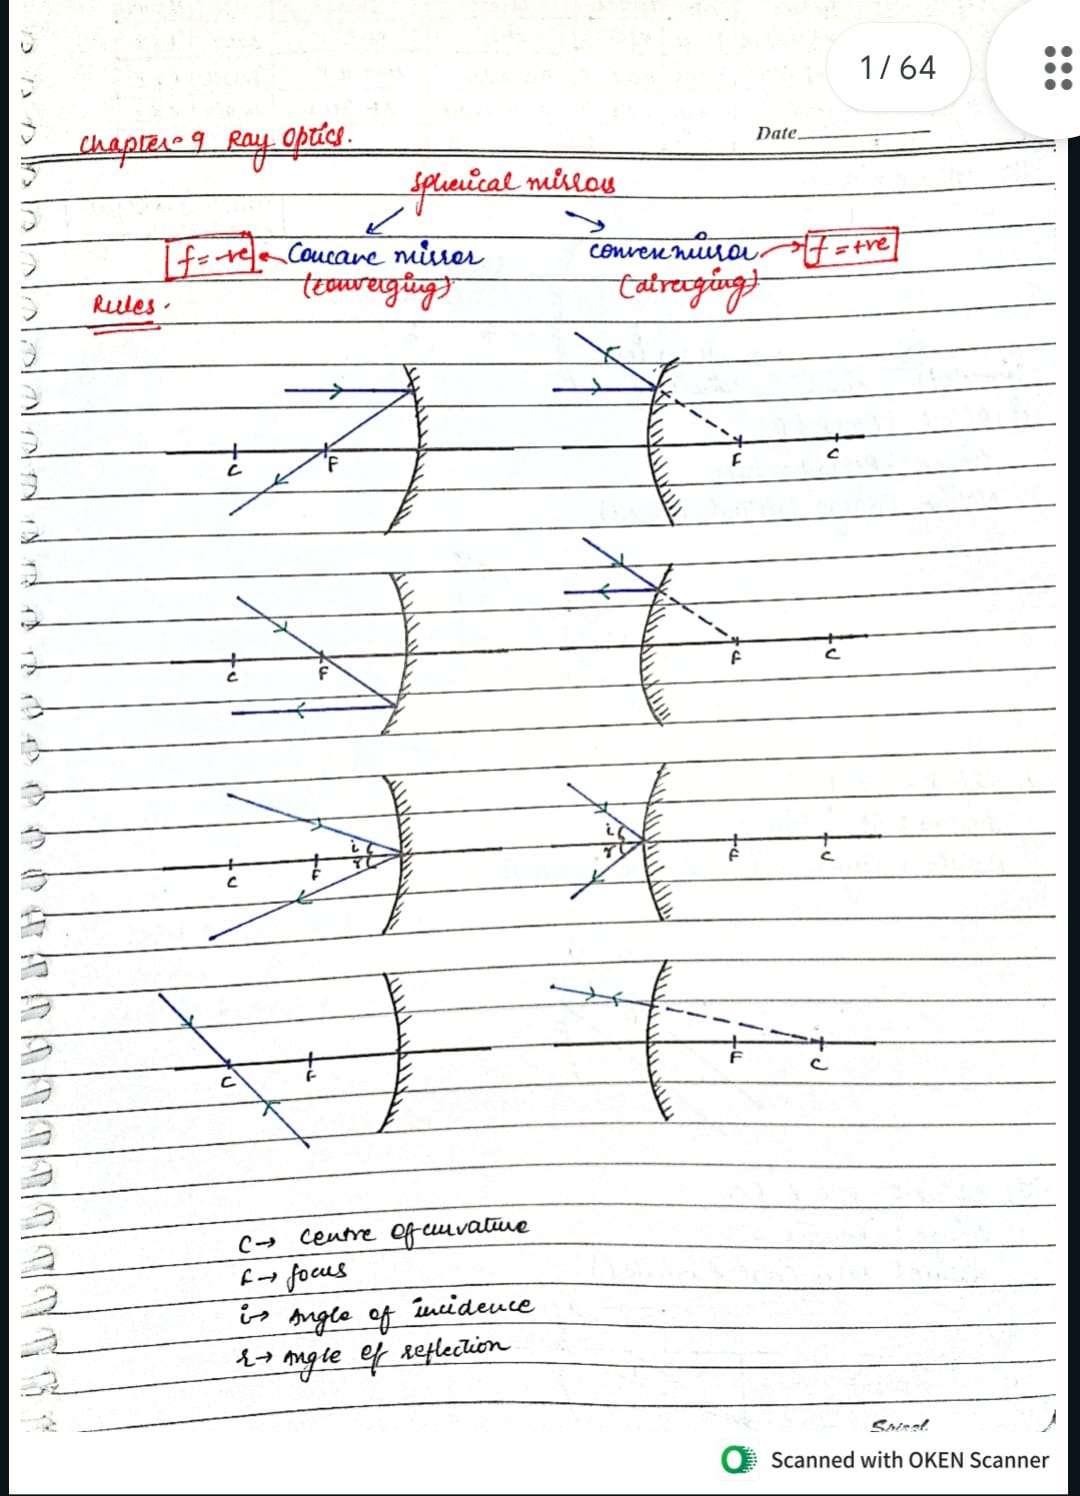 1/ 64
Date
Chapter-9 Ray Optics.
Spherical mirror
f = -ve Concave mirror convex mirror f = +ve
(converging) (diverging)
Rules.
C F F C
C F F C
i r C F i r F C
C F F C
C→ Centre of curvature
F→ focus
i→ Angle of incidence
r→ Angle of reflection
Spiral
Scanned with OKEN Scanner